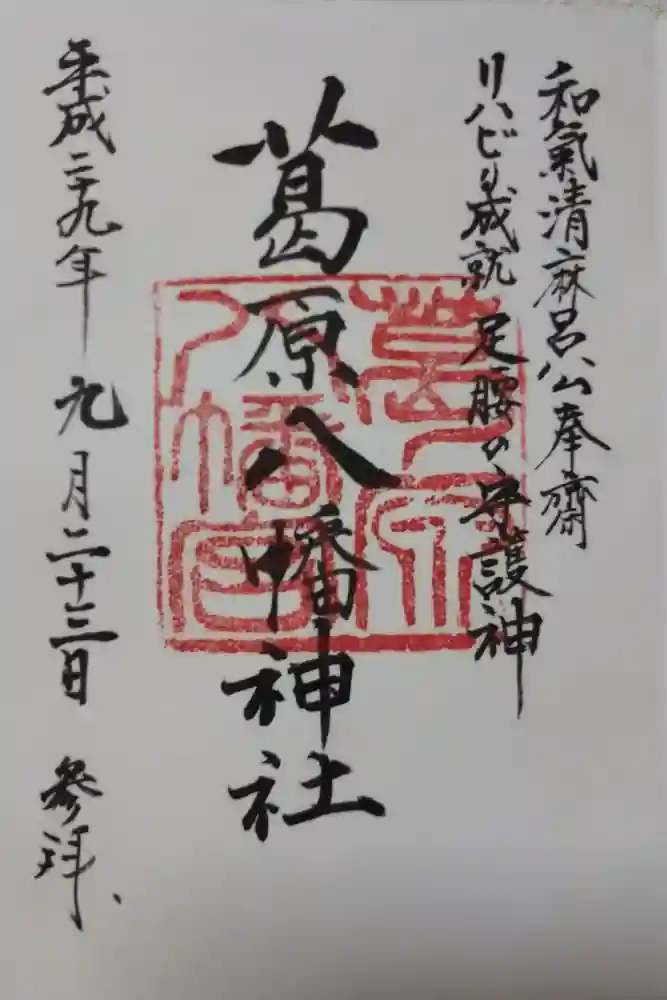 和氣清麻呂公奉齋
リハビリ成就 足腰の守護神
葛原八幡神社
平成二十九年 九月二十三日 参拝、